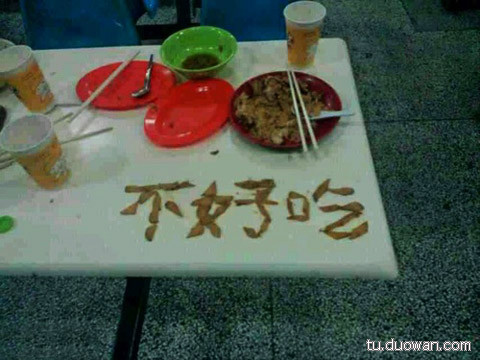 不好吃
tu.duowan.com